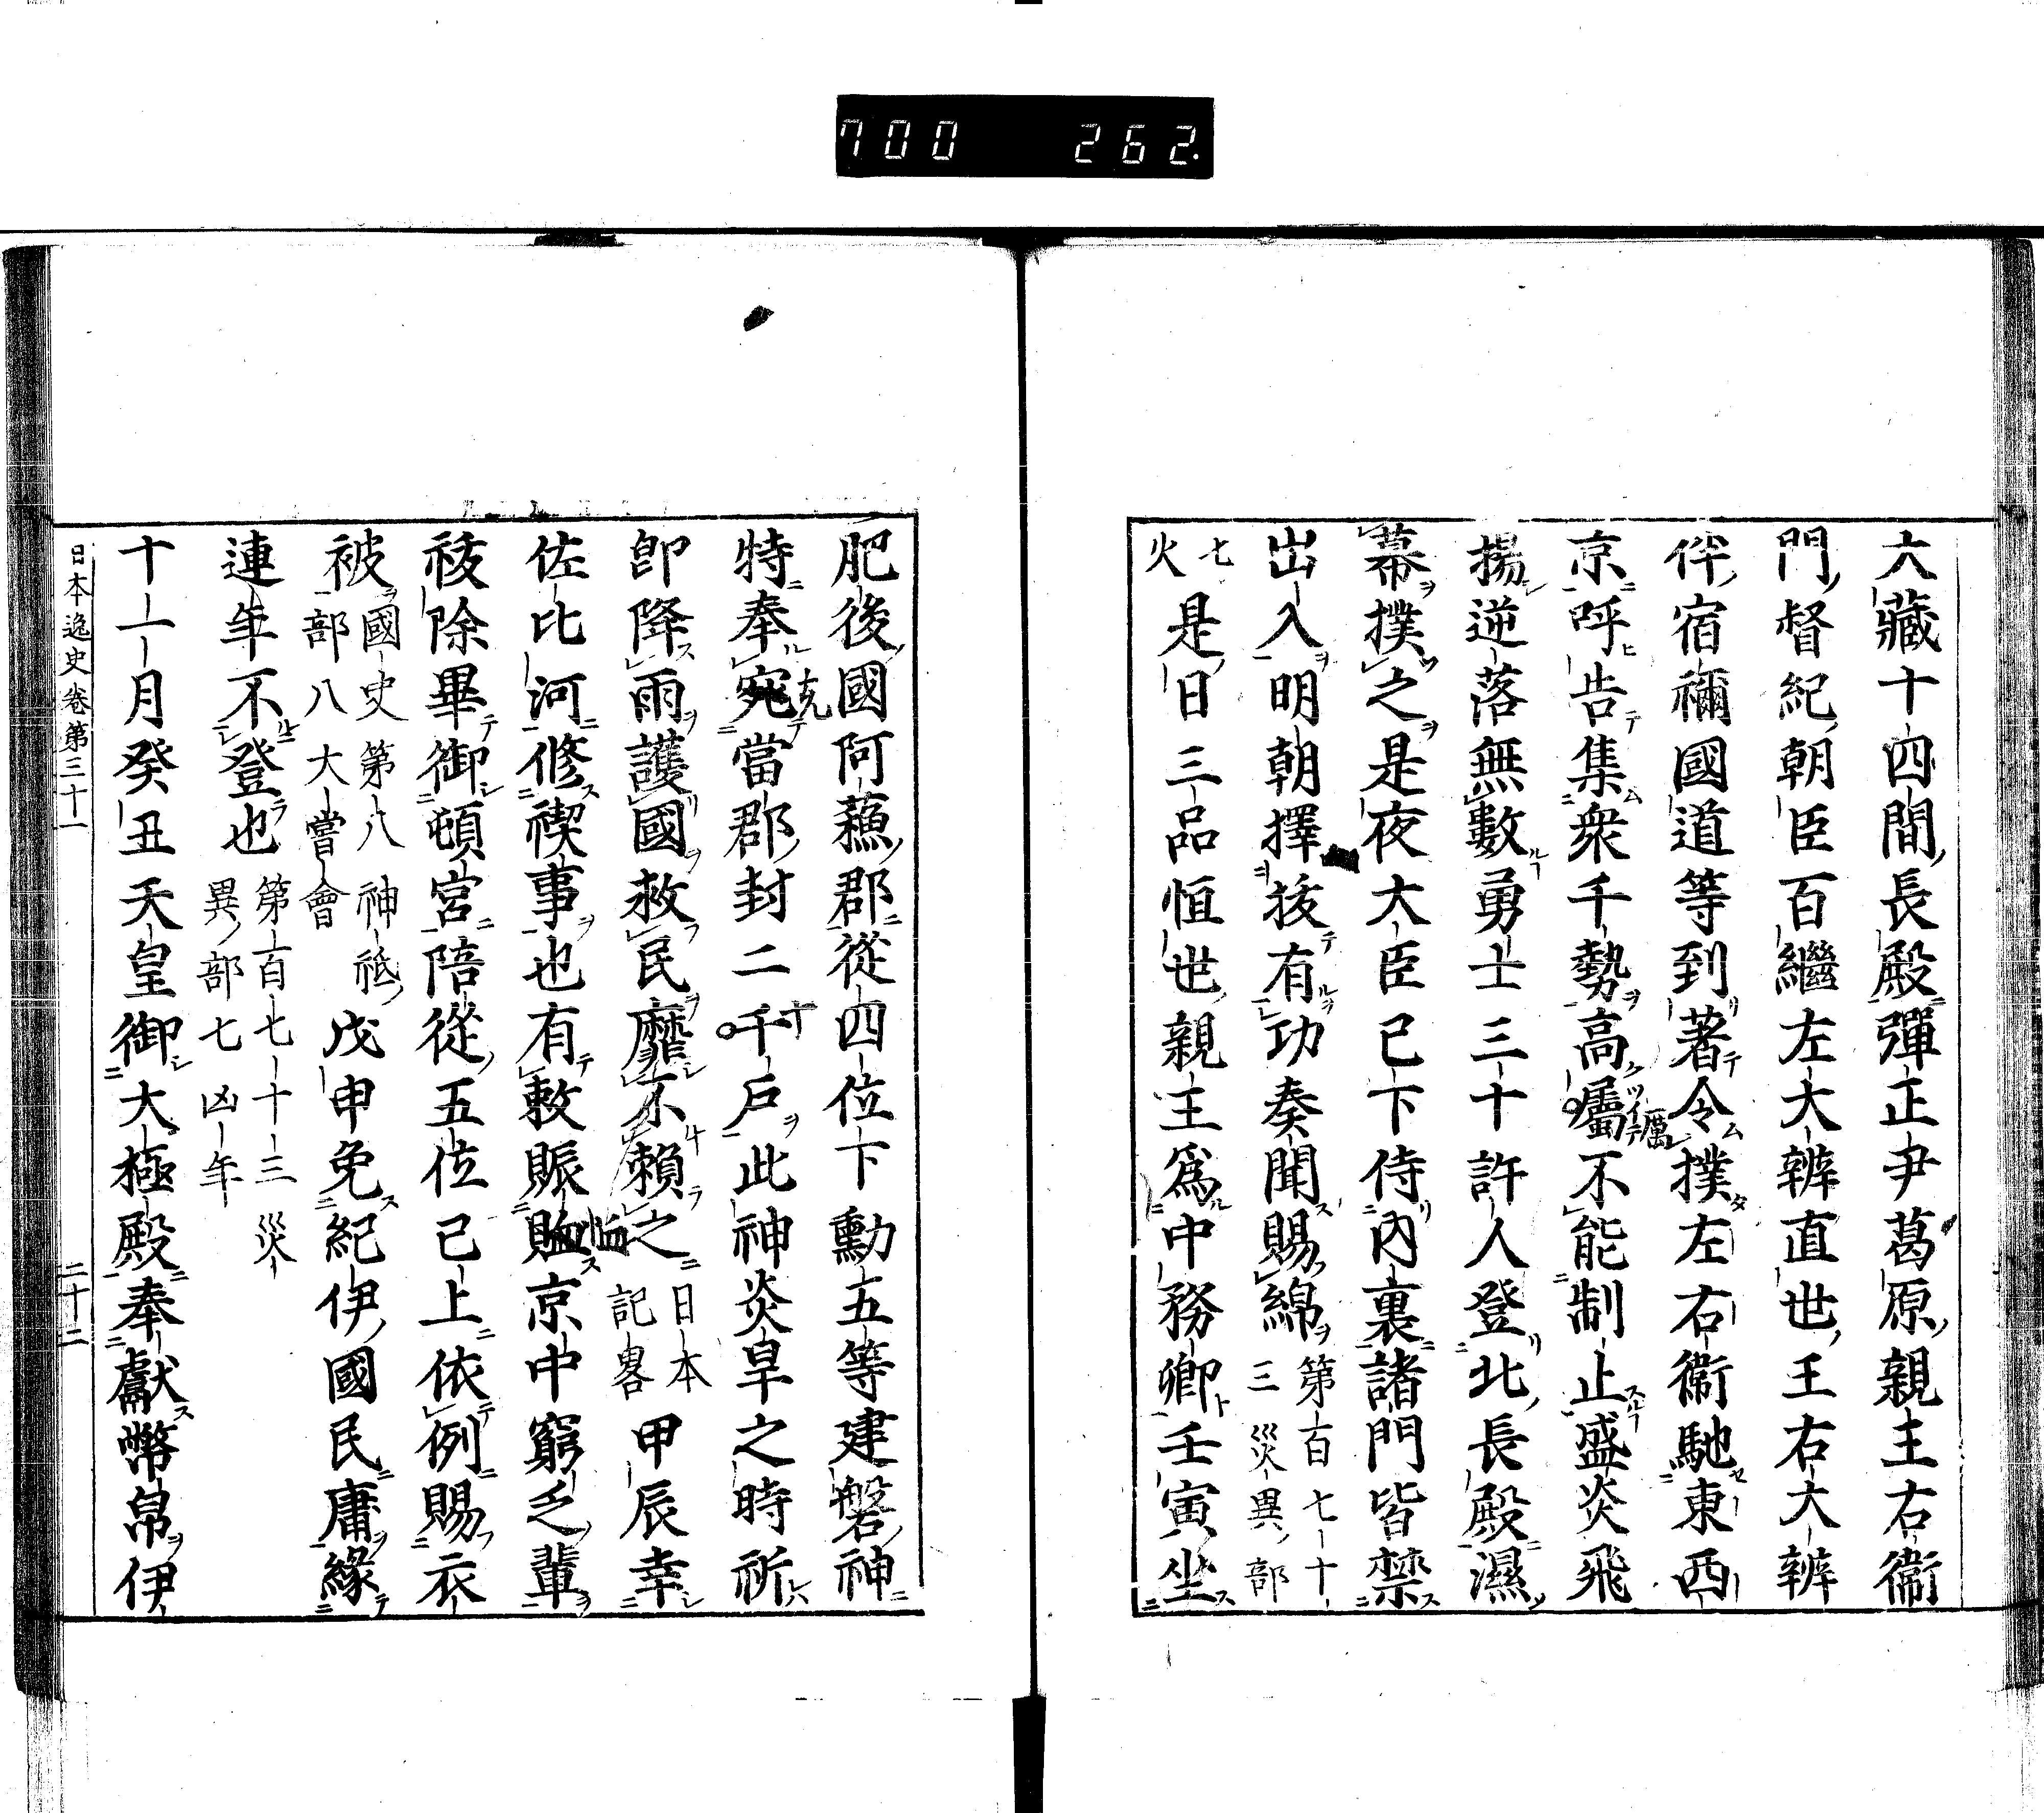 700 262.
六藏十四間長殿彈正尹葛原親王右衞
門督紀朝臣百繼左大辨直世王右大辨
伴宿禰國道等到著令撲左右衞馳東西
京呼告集衆千勢高屬不能制止盛炎飛
揚逆落無數勇士三十許人登北長殿濕
幕撲之是夜大臣已下侍內裏諸門皆禁
出入明朝擇拔有功奏聞賜綿第百七十三災異部
七火是日三品恒世親王爲中務卿壬寅坐
肥後國阿蘓郡從四位下勳五等建磐神
特奉宛當郡封二千戶此神炎旱之時祈
卽降雨護國救民靡不賴之日本記畧甲辰幸
佐比河修禊事也有敕賑賉京中窮乏輩
祓除畢御頓宮陪從五位已上依例賜衣
被國史第八神祇部八大嘗會戊申免紀伊國民庸緣
連年不登也第百七十三災異部七凶年
十一月癸丑天皇御大極殿奉獻幣帛伊
日本逸史卷第三十一 二十二